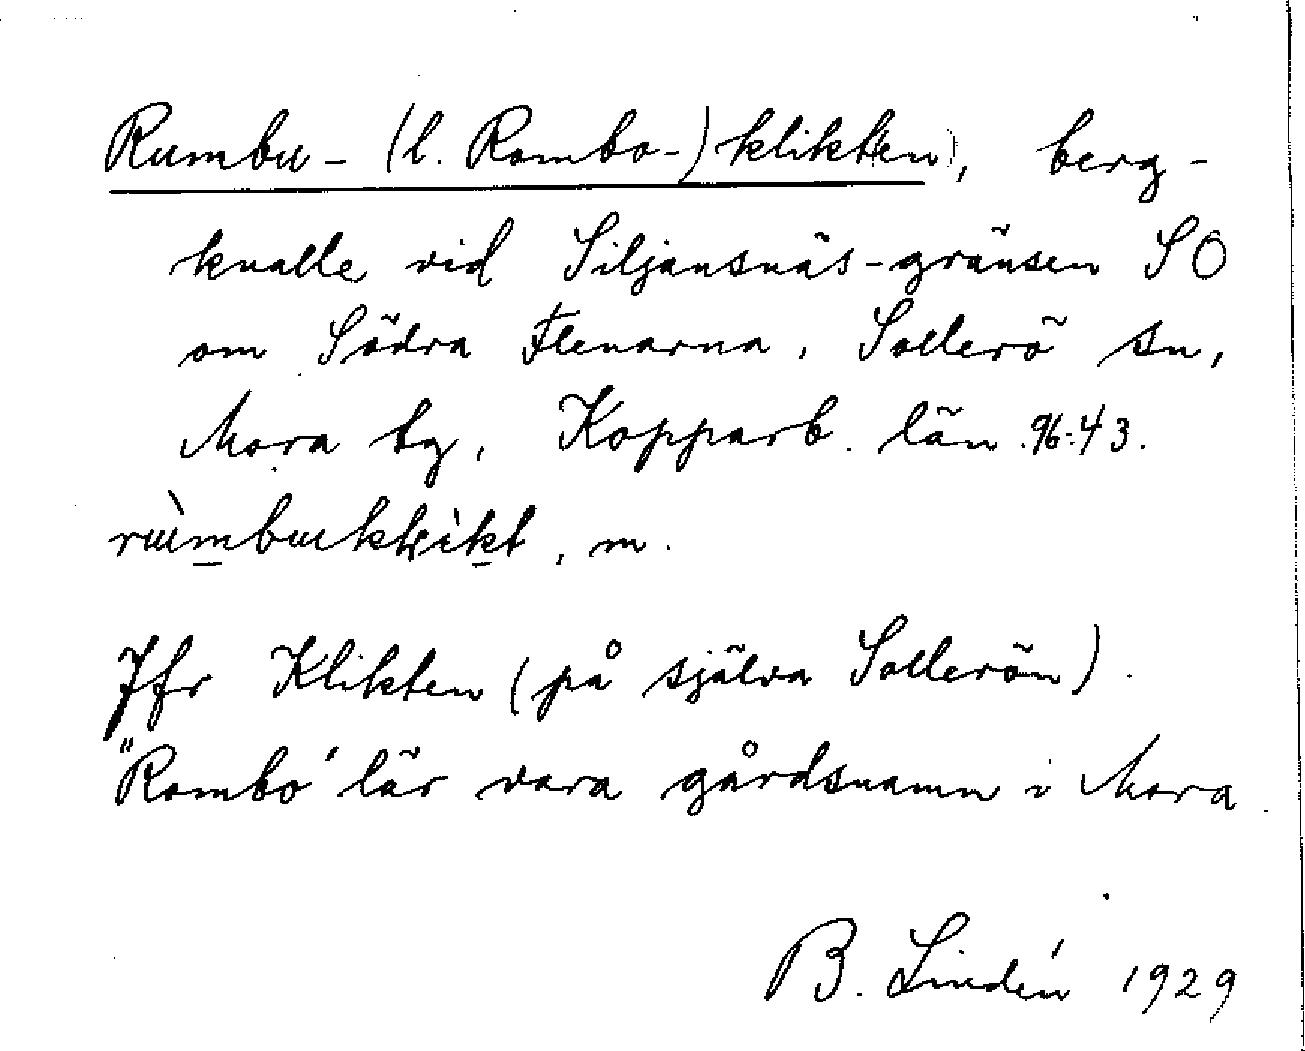 Rumbu- (l. Rombo-) klikten, berg-
knalle vid Siljansnäs-gränsen SO
om Södra Flenarna, Sollerö sn,
Mora tg, Kopparb. län. 96:43.
m.
Jfr Klikten (på själva Sollerön).
"Rombo" lär vara gårdsnamn i Mora.
B. Lindén 1929